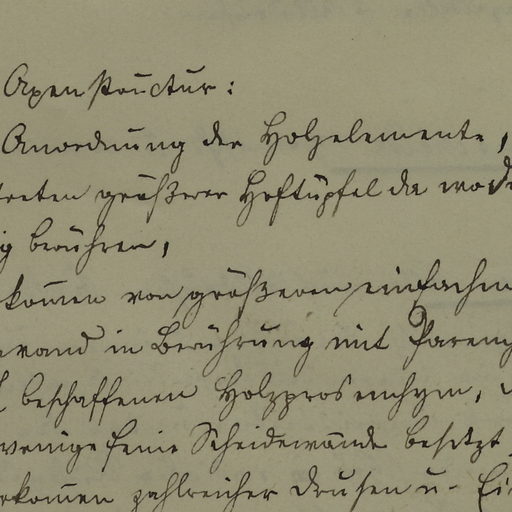 Axenstructur:
Anordnung der Holzelemente,
treten größerer Hoftüpfel da wo d
ig berühren,
kom̄en von größeren einfachen
wand in Berührung mit Parenc
beschaffenen Holzprosenchym,
wenige feine Scheidewände besitzt
rkom̄en zahlreicher Drusen u. Ei